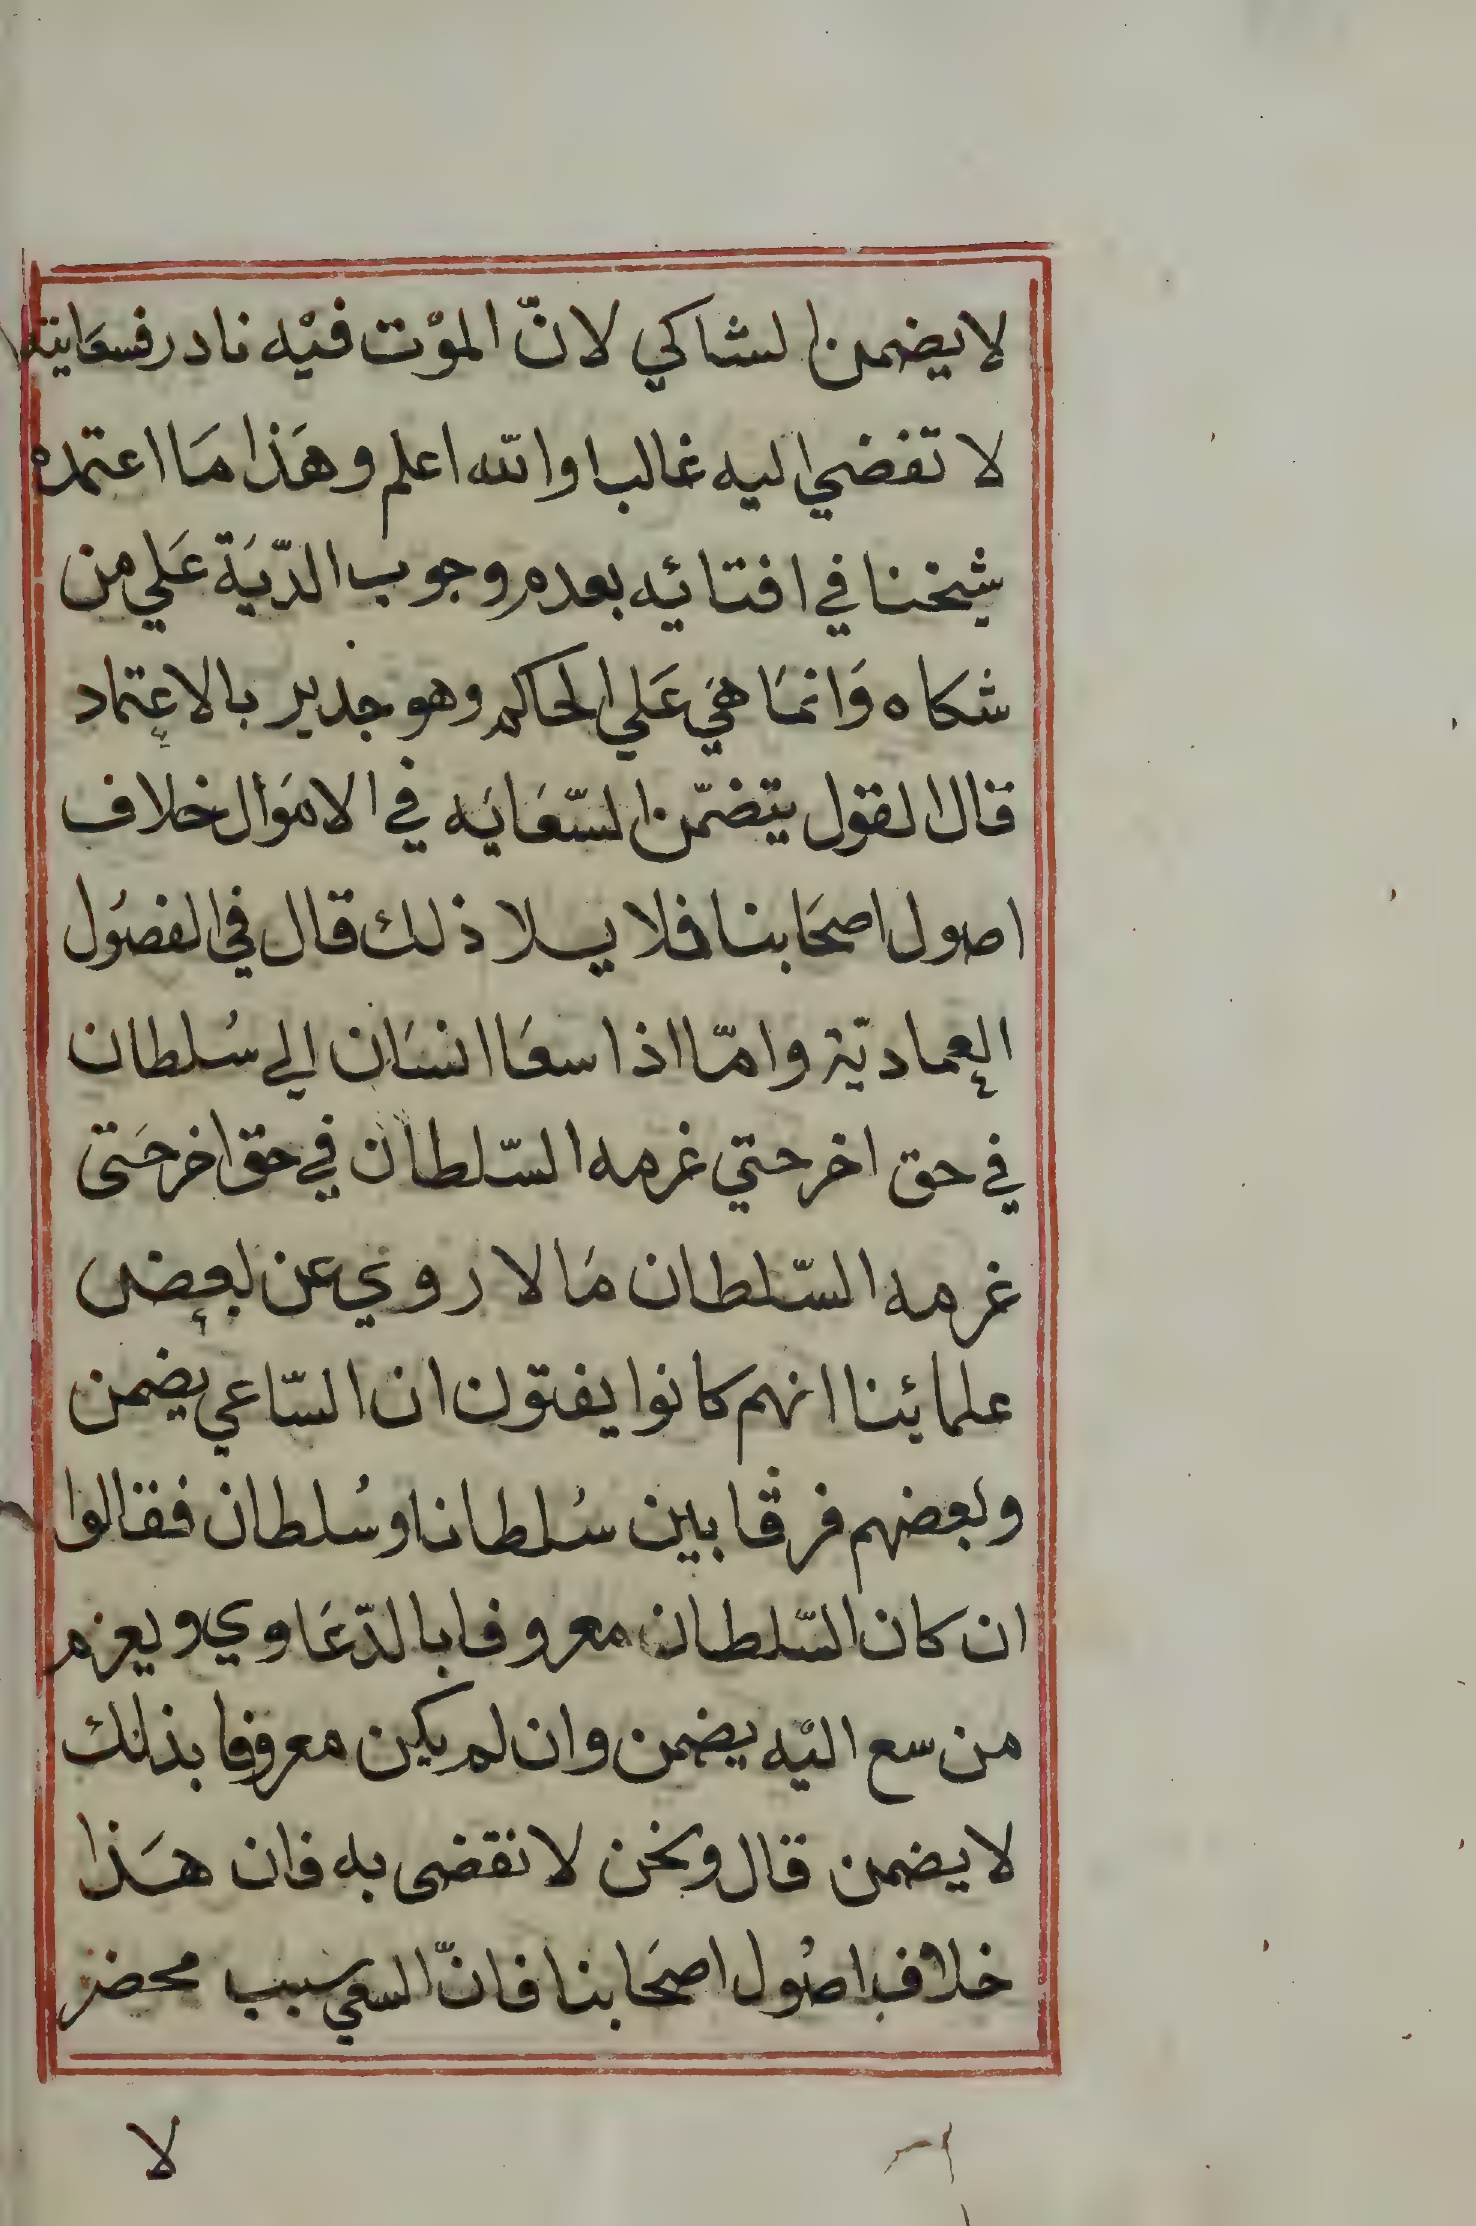 لا يضمن الشاكي لانّ الموْت فيْه نادر فسعَايته
لا تفضي اليه غالبا والله اعلم وهَذا مَا اعتمده
شيخنا في افتائه بعدم وجوب الدّيَة عَلي من
شكاه وَانمَا هيَ عَلي الحاكم وهو جدير بالاعتماد
قال القول يتضمّن السّعَايَه في الاموَال خلاف
اصول اصحَابنا فلا يسلا ذلك قال في الفصُول
العماديّة وامّا اذا سعَا انسَان الي سُلطان
في حق اخر حتي غرمه السّلطان في حق اخر حَتى
غرمه السّلطان مَالا روي عن بعض
علمائنا انهم كانوا يفتون ان السّاعي يضمن
وبعضهم فرقا بين سُلطانا وسُلطان فقالوا
ان كان السّلطان معروفا بالدّعَاوي ويعزم
من سع اليْه يضمن وان لم يكن معروفا بذلك
لا يضمن قال ونحن لا نقضى به فان هَذا
خلاف اصُول اصحَابنا فانّ السعي سبب محضر
لا